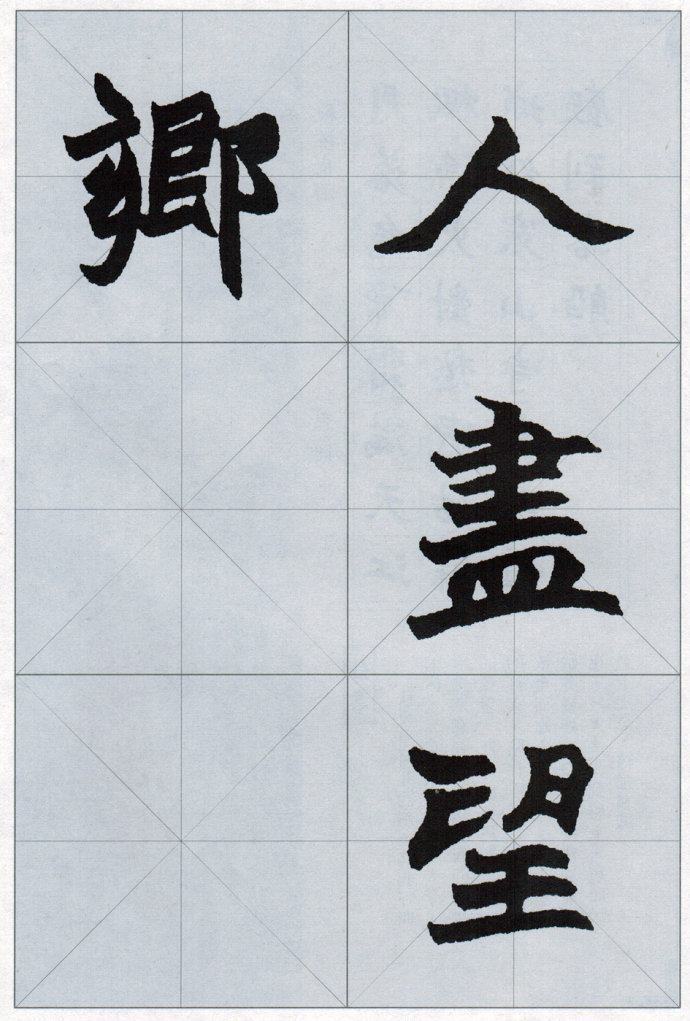 人盡望
鄉